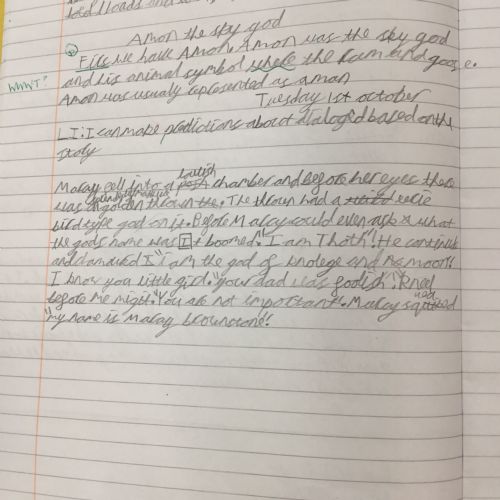 Amon the sky god
Firs we have Amon. Amon was the sky god
WHWT?
and his animal symbol where the Ram and goose.
Amon was usualy represented as a man
Tuesday 1st october
LI: I can make predictions about dialoged based on the
story
Marcy fell into a chamber and before her eyes there
was golden thrown. The thrown had a eerie
bird type god on it. Before Marcy could even ask what
the gods name was It boomed. "I am Thoth"! He continued
and demanded I "I am the god of knolege and the moon!
I know you little girl. "your dad was foolish". "Kneel
before me might. "You are not important". Marcy
"my name is Marcy brownstone!